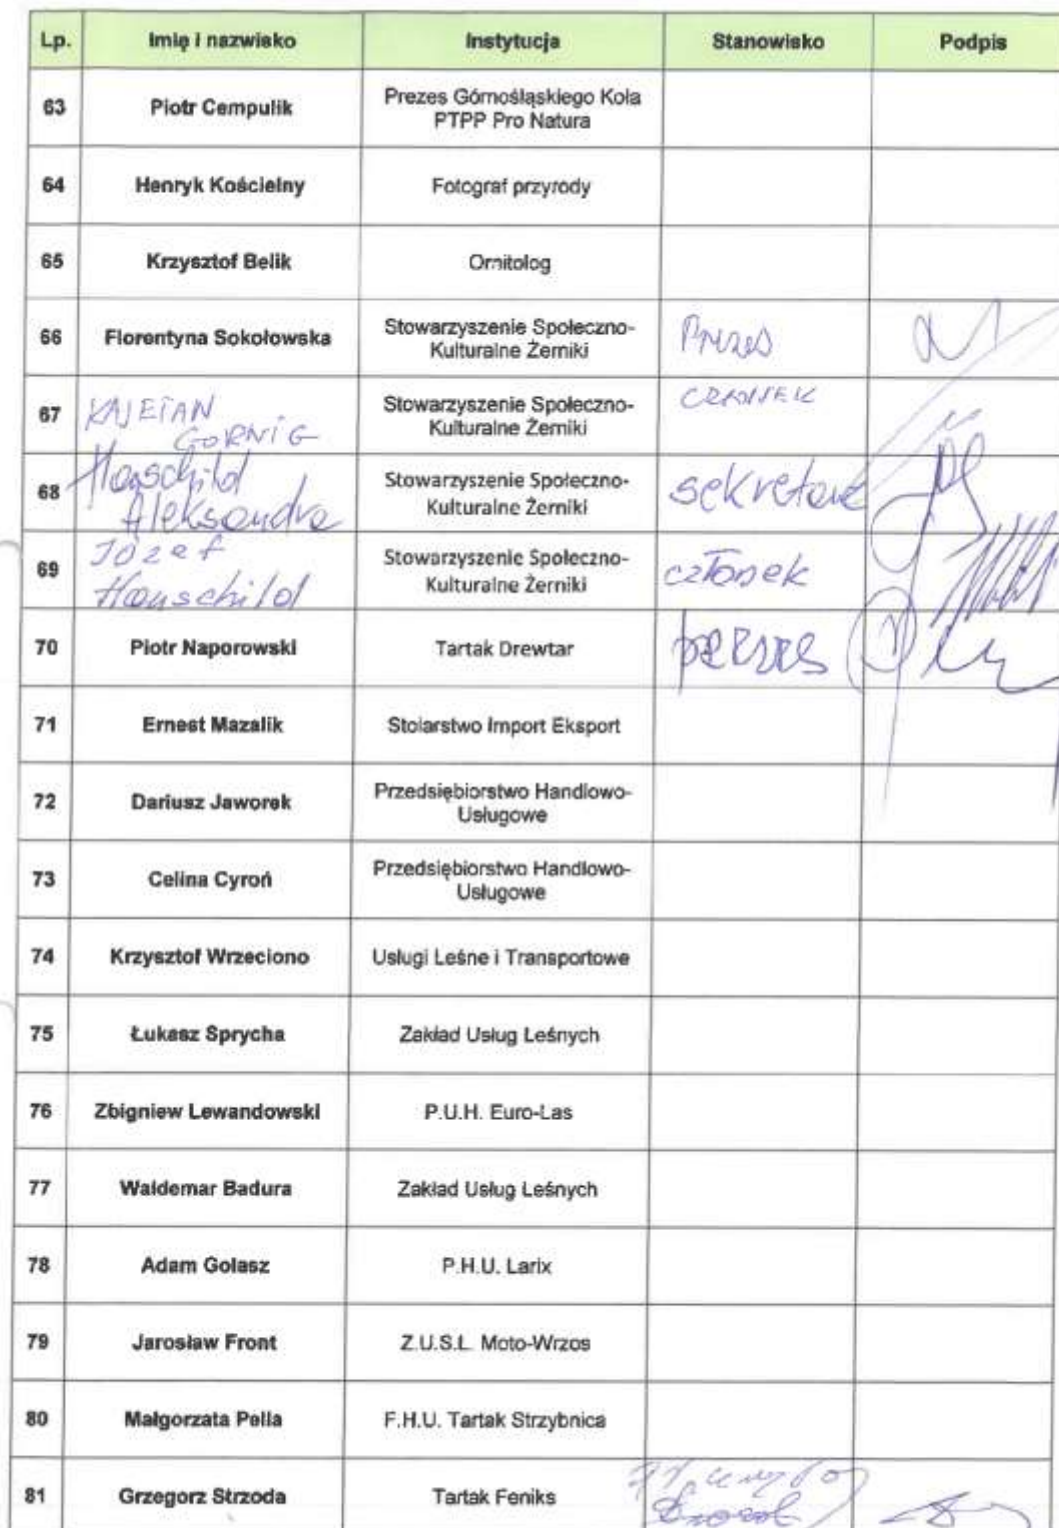 Lp. Imię i nazwisko Instytucja Stanowisko Podpis
63 Piotr Cempulik Prezes Górnośląskiego Koła
PTPP Pro Natura
64 Henryk Kościelny Fotograf przyrody
65 Krzysztof Belik Ornitolog
66 Florentyna Sokołowska Stowarzyszenie Społeczno-
Kulturalne Żerniki Prezes
67 KAJETAN
GORNIG Stowarzyszenie Społeczno-
Kulturalne Żerniki CZŁONEK
68 Hanschild
Aleksandra Stowarzyszenie Społeczno-
Kulturalne Żerniki sekretarz
69 Józef
Hanschild Stowarzyszenie Społeczno-
Kulturalne Żerniki członek
70 Piotr Naporowski Tartak Drewtar prezes
71 Ernest Mazalik Stolarstwo Import Eksport
72 Dariusz Jaworek Przedsiębiorstwo Handlowo-
Usługowe
73 Celina Cyroń Przedsiębiorstwo Handlowo-
Usługowe
74 Krzysztof Wrzeciono Usługi Leśne i Transportowe
75 Łukasz Sprycha Zakład Usług Leśnych
76 Zbigniew Lewandowski P.U.H. Euro-Las
77 Waldemar Badura Zakład Usług Leśnych
78 Adam Golasz P.H.U. Larix
79 Jarosław Front Z.U.S.L. Moto-Wrzos
80 Małgorzata Pella F.H.U. Tartak Strzybnica
81 Grzegorz Strzoda Tartak Feniks